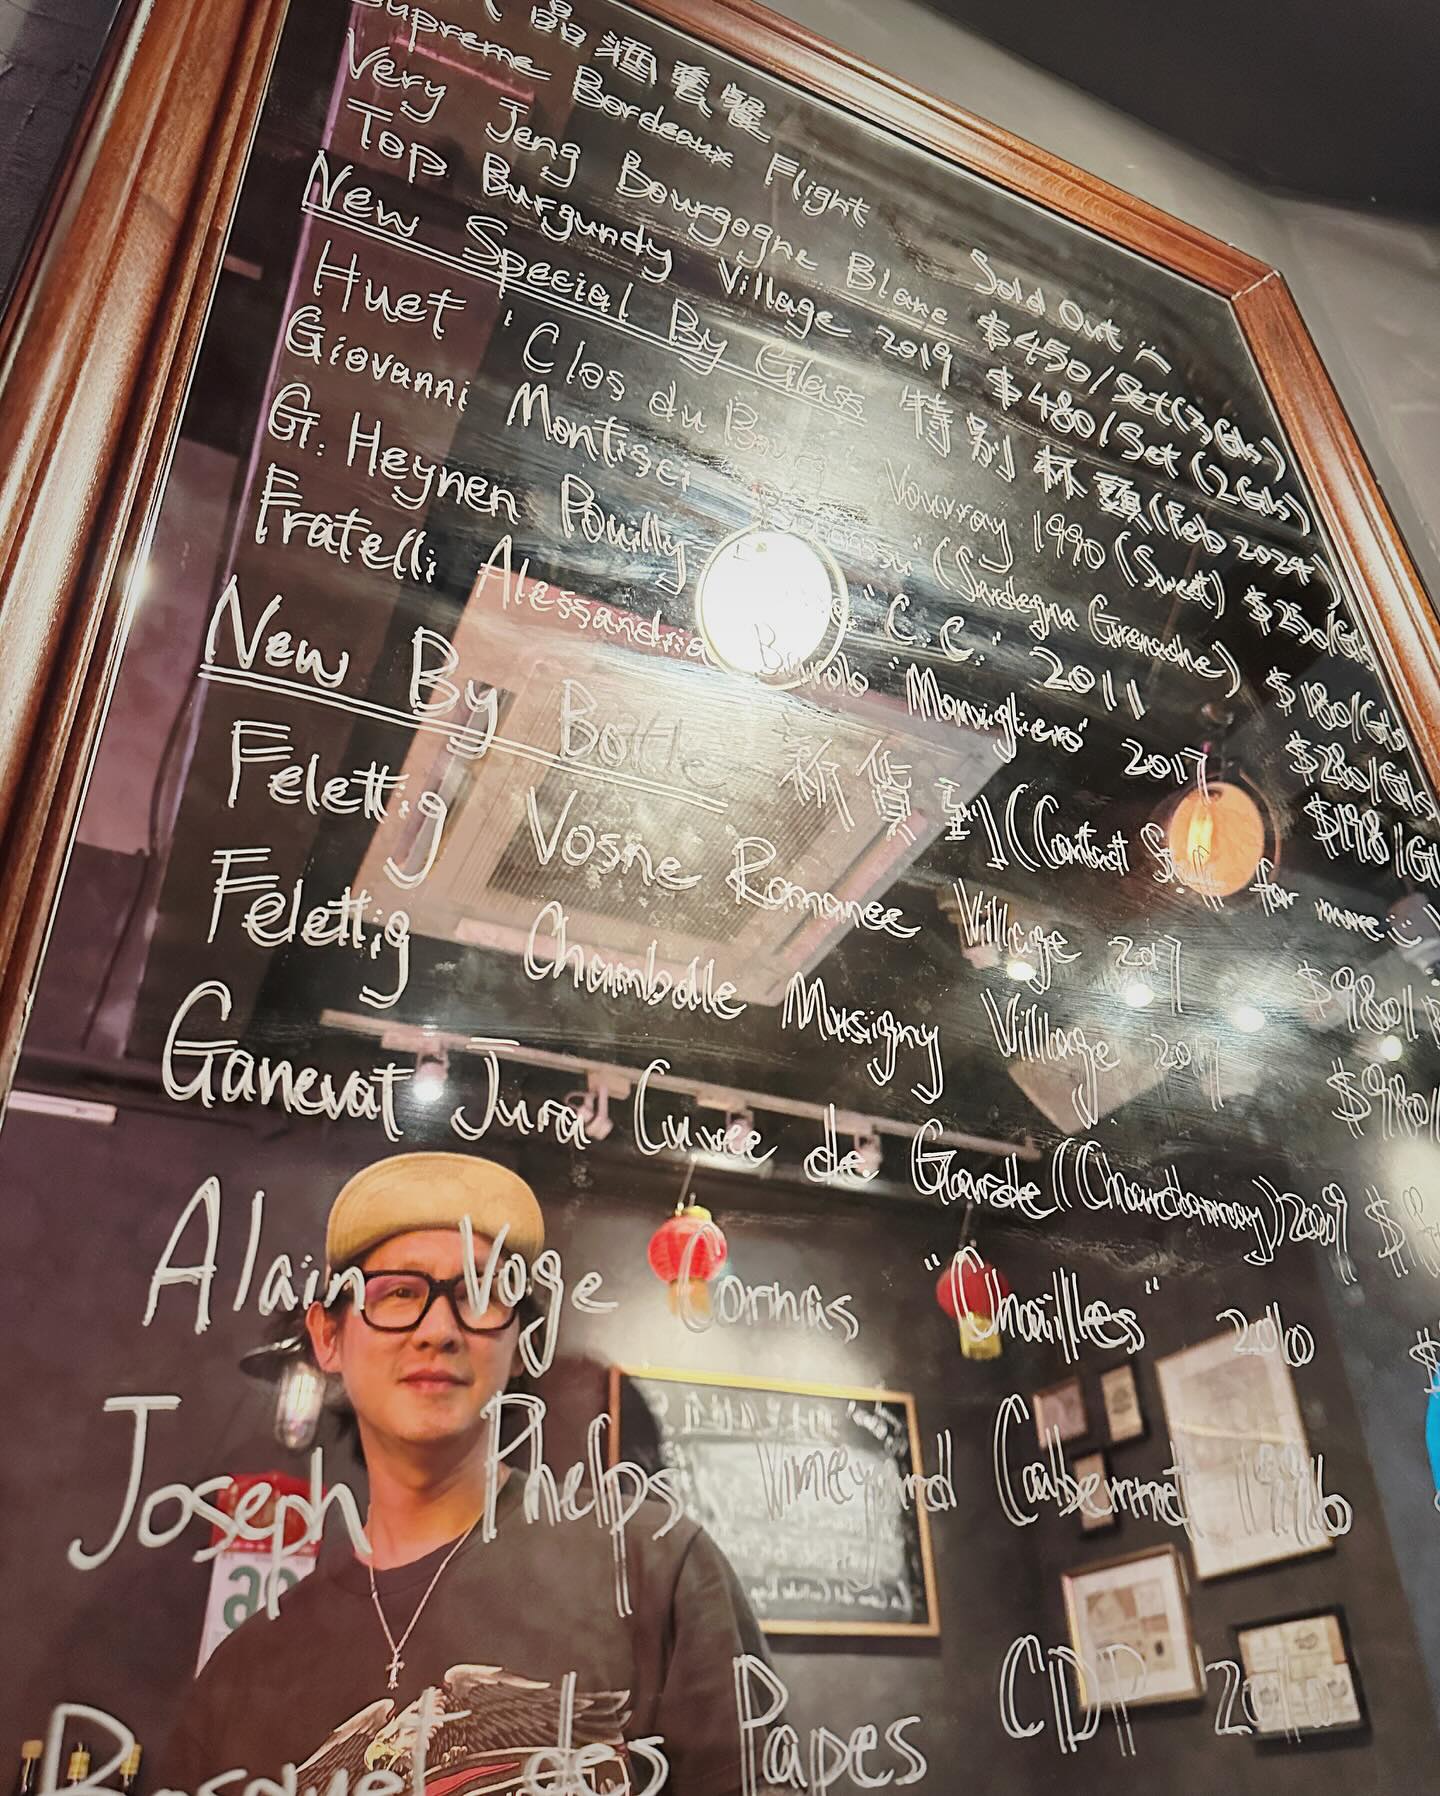 品酒套餐
Supreme Bordeaux Flight Sold Out
Very Jeng Bourgogne Blanc $450/Set(3Gls)
Top Burgundy Village 2019 $480/Set(2Gls)
New Special By Glass 特別杯頭(Feb 2024)
Huet 'Clos du Bourg Vouvray 1990 (Sweet)
Giovanni Montisci (Sardegna Grenache) $180/Gls
G. Heynen Pouilly "C.C." 2011 $280/Gls
Fratelli Alessandria Barolo "Monvigliero" 2017 $198/Gl
New By Bottle 新貨 (Contact Staff for more :)
Felettig Vosne Romanee Village 2017 $980/
Felettig Chambolle Musigny Village 2017 $980/
Ganevat Jura Cuvee de Garde (Chardonnay) 2009 $
Alain Voge Cornas "Chailles" 2016 $
Joseph Phelps Vineyard Cabernet 1996
Bosquet des Papes CDP